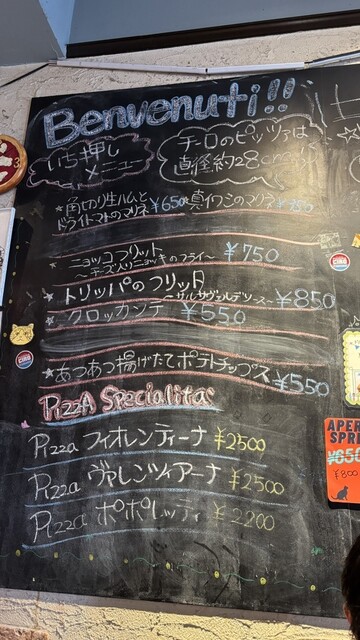 Benvenuti!!
いち押し
メニュー
チーロのピッツァは
直径約28cm
★角切り生ハムと
ドライトマトのマリネ ¥650 真イワシのマリネ
ニョッコフリット ¥750
～チーズ入りニョッキのフライ～
★トリッパのフリット
～サルサヴェルデソース～ ¥850
★クロッカンテ ¥550
★あつあつ揚げたてポテトチップス ¥550
PizzA Specialita
Pizza フィオレンティーナ ¥2500
Pizza ヴァレンツィアーナ ¥2500
Pizza ポポレッティ ¥2200
CIRO
CIRO
APER
SPR
¥850
¥800